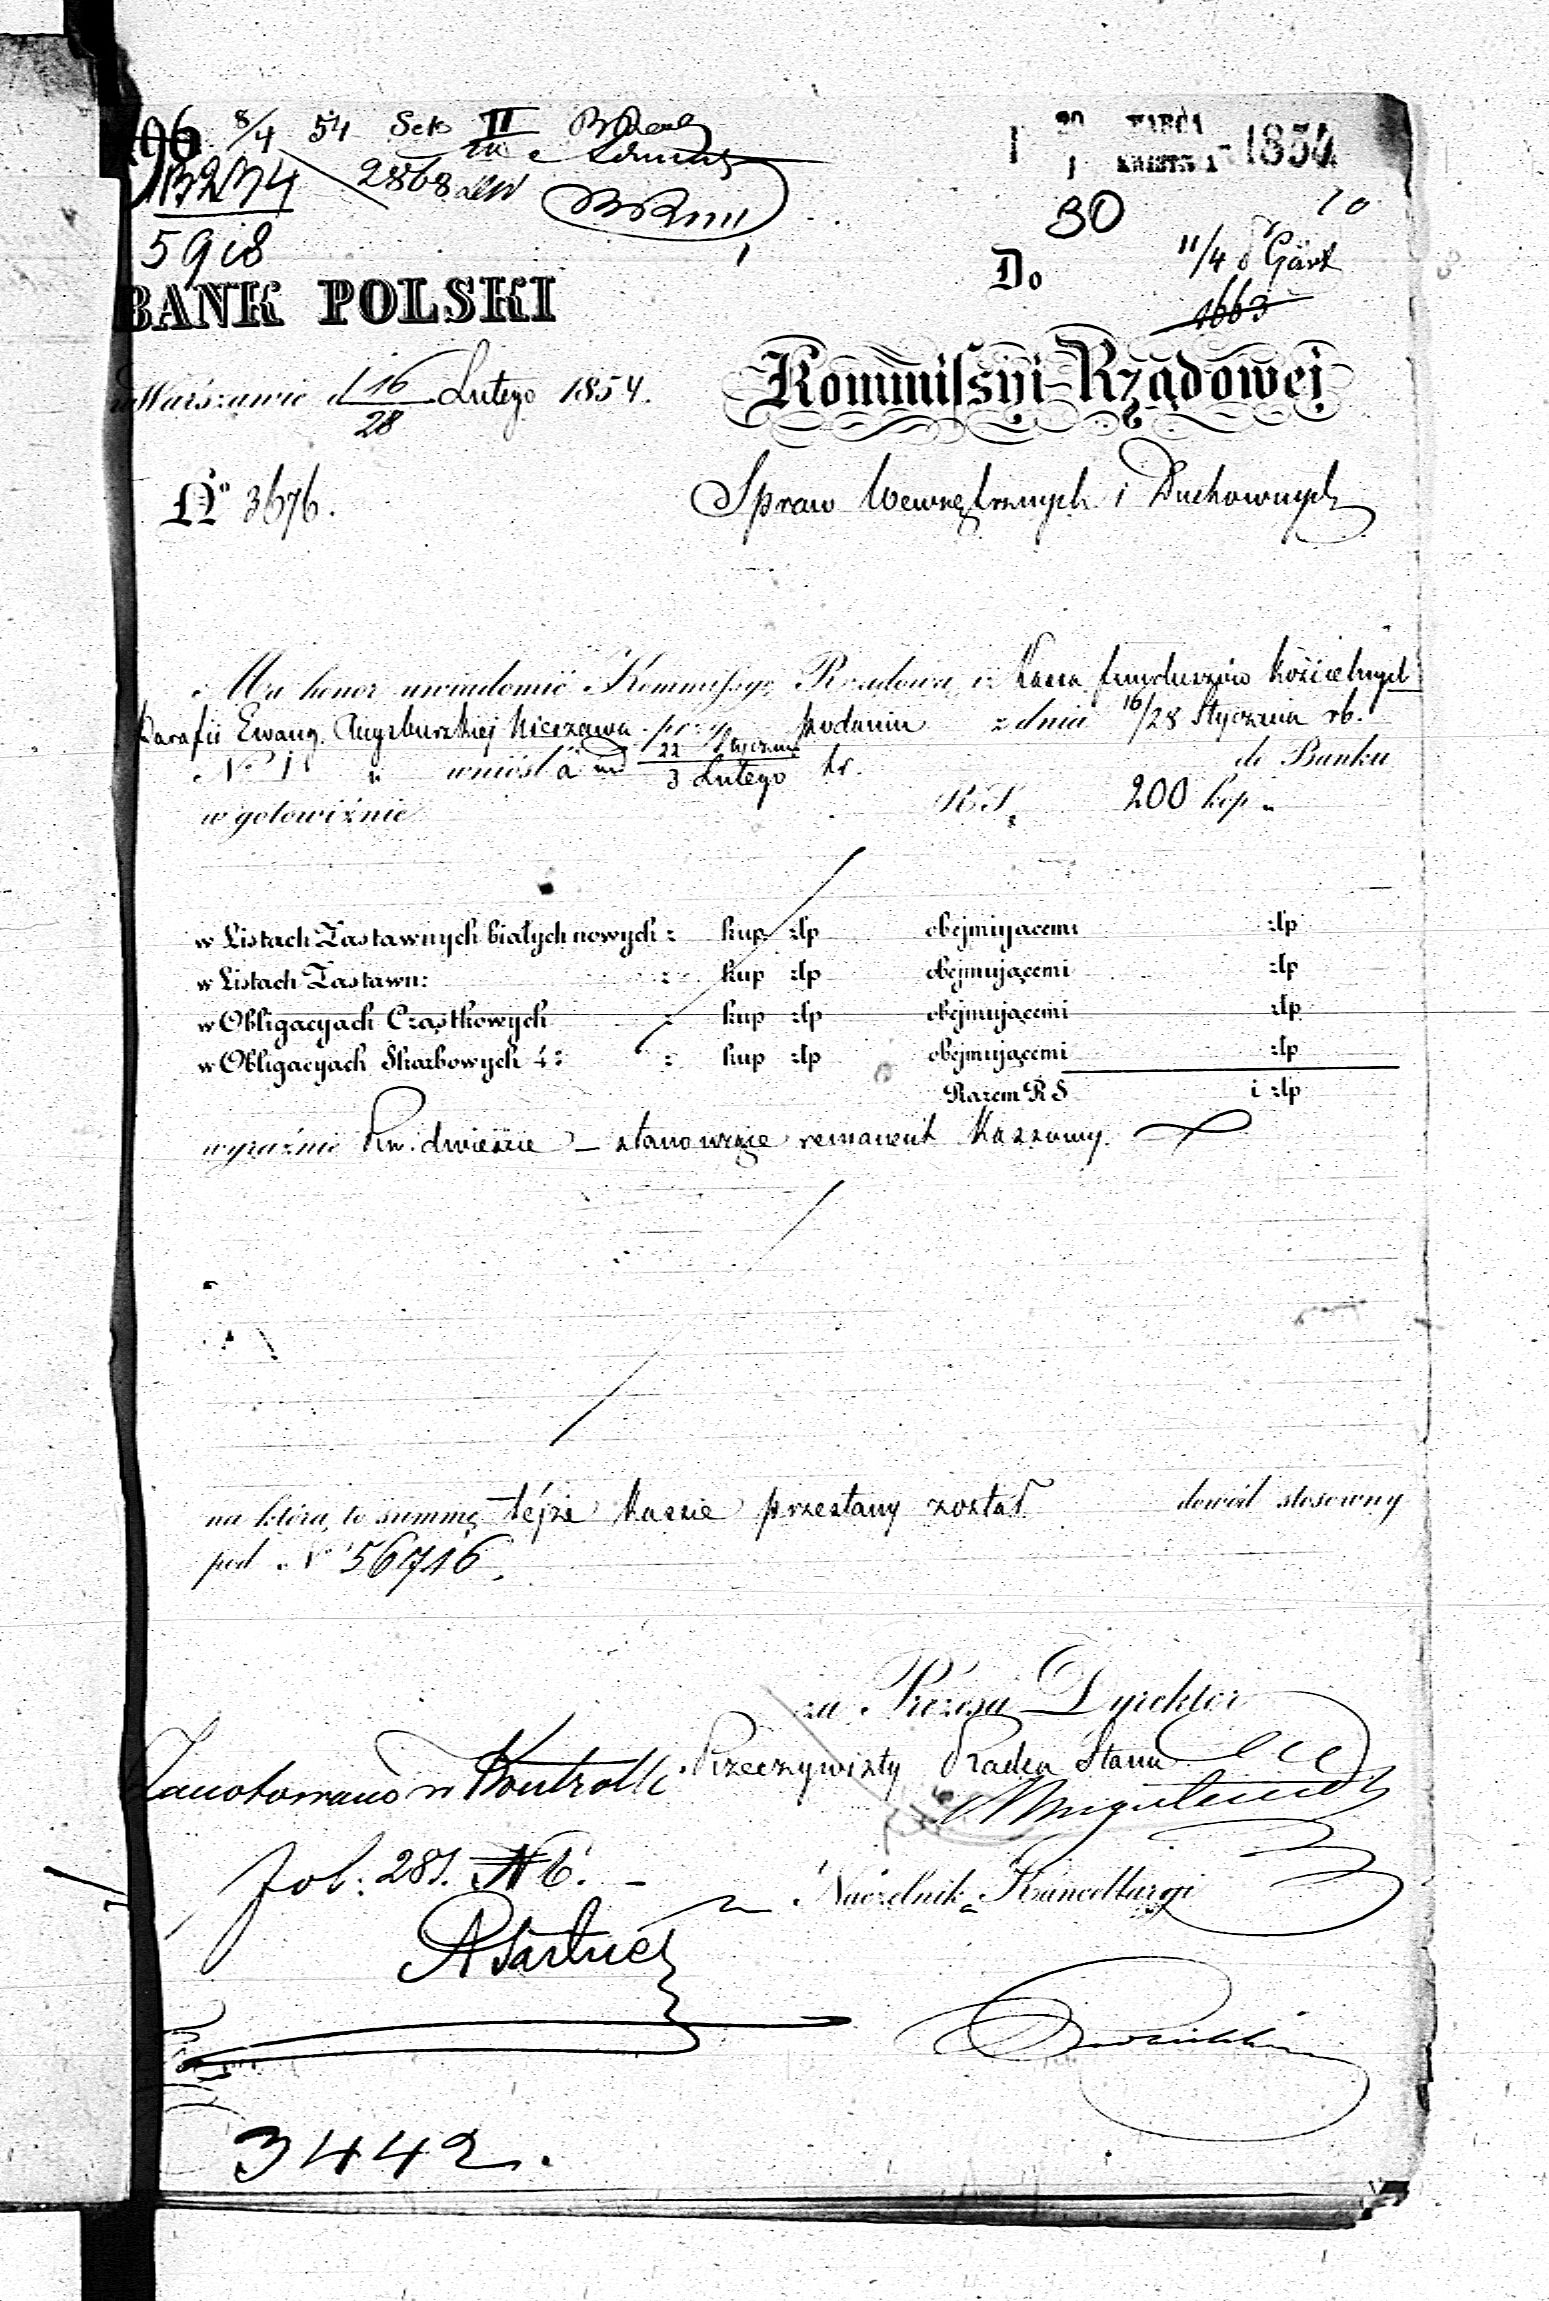 8/4 54 Sek II
13234 2868
5918
1854
30
10
11/4 Gärt
1663
BANK POLSKI
Do
Kommissyi Rządowej
w Warszawie d 16/28 Lutego 1854.
Nº 3676.
Spraw Wewnętrznych i Duchownych
Ma honor uwiadomić Kommissyę Rządową iż Kassa funduszów Kościelnych
Parafii Ewang. Augsburskiej Nieszawa przy podaniu z dnia 16/28 Stycznia rb.
Nº 1 " wniosła pod 22 Stycznia / 3 Lutego br. do Banku
w gotowiźnie RS. 200 kop "
w Listach Zastawnych białych nowych : kup złp obejmującemi złp
w Listach Zastawn: : kup złp obejmującemi złp
w Obligacyach Cząstkowych : kup złp obejmującemi złp
w Obligacyach Skarbowych 4: : kup złp obejmującemi złp
Razem RS i złp
wyraźnie Rsr. dwieście – stanowiące remanent Kassowy.
na którą to summę tejże Kassie przesłany został dowód stosowny
pod Nº 56716.
za Prezesa Dyrektor
Rzeczywisty Radca Stanu
Zanotowano w Kontrolli
fol: 281. N 6. –
Naczelnik Kancellaryi
3442.